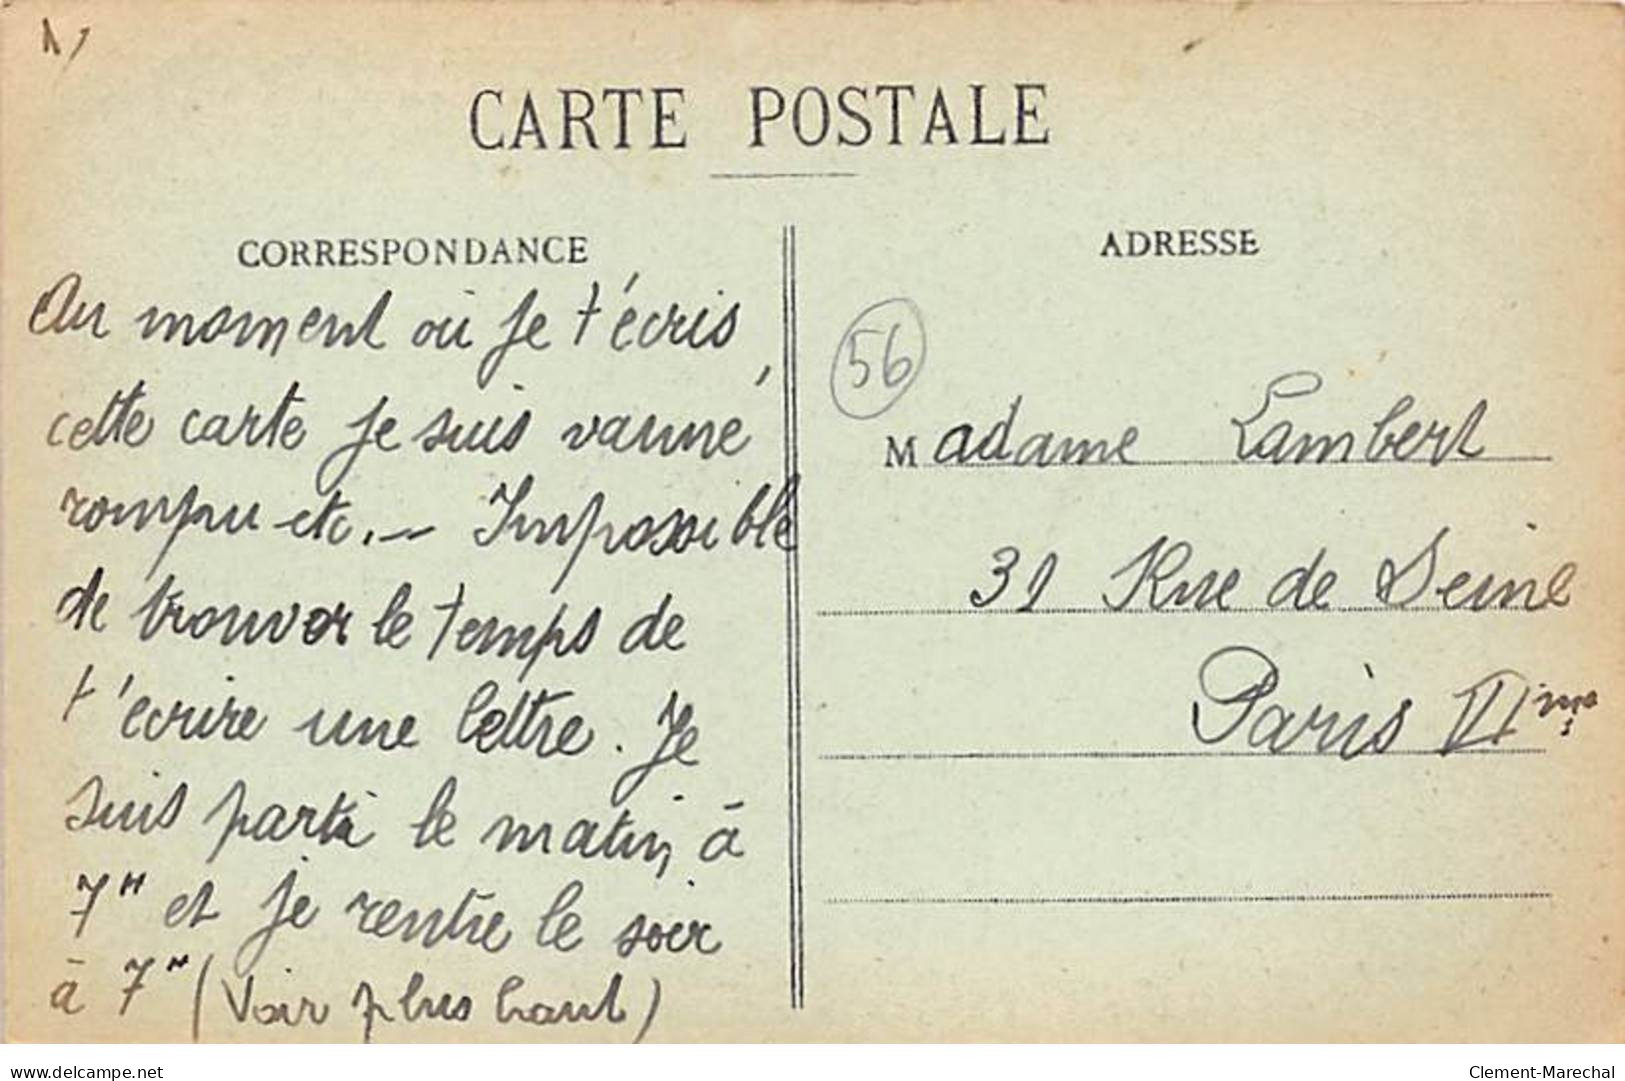 CARTE POSTALE
CORRESPONDANCE
Au moment où je t'écris
cette carte je suis vanné,
rompu etc. — Impossible
de trouver le temps de
t'écrire une lettre. Je
suis parti le matin à
7H et je rentre le soir
à 7H (Voir plus haut)
ADRESSE
56
Madame Lambert
31 Rue de Seine
Paris VIme
www.delcampe.net
Clement-Marechal